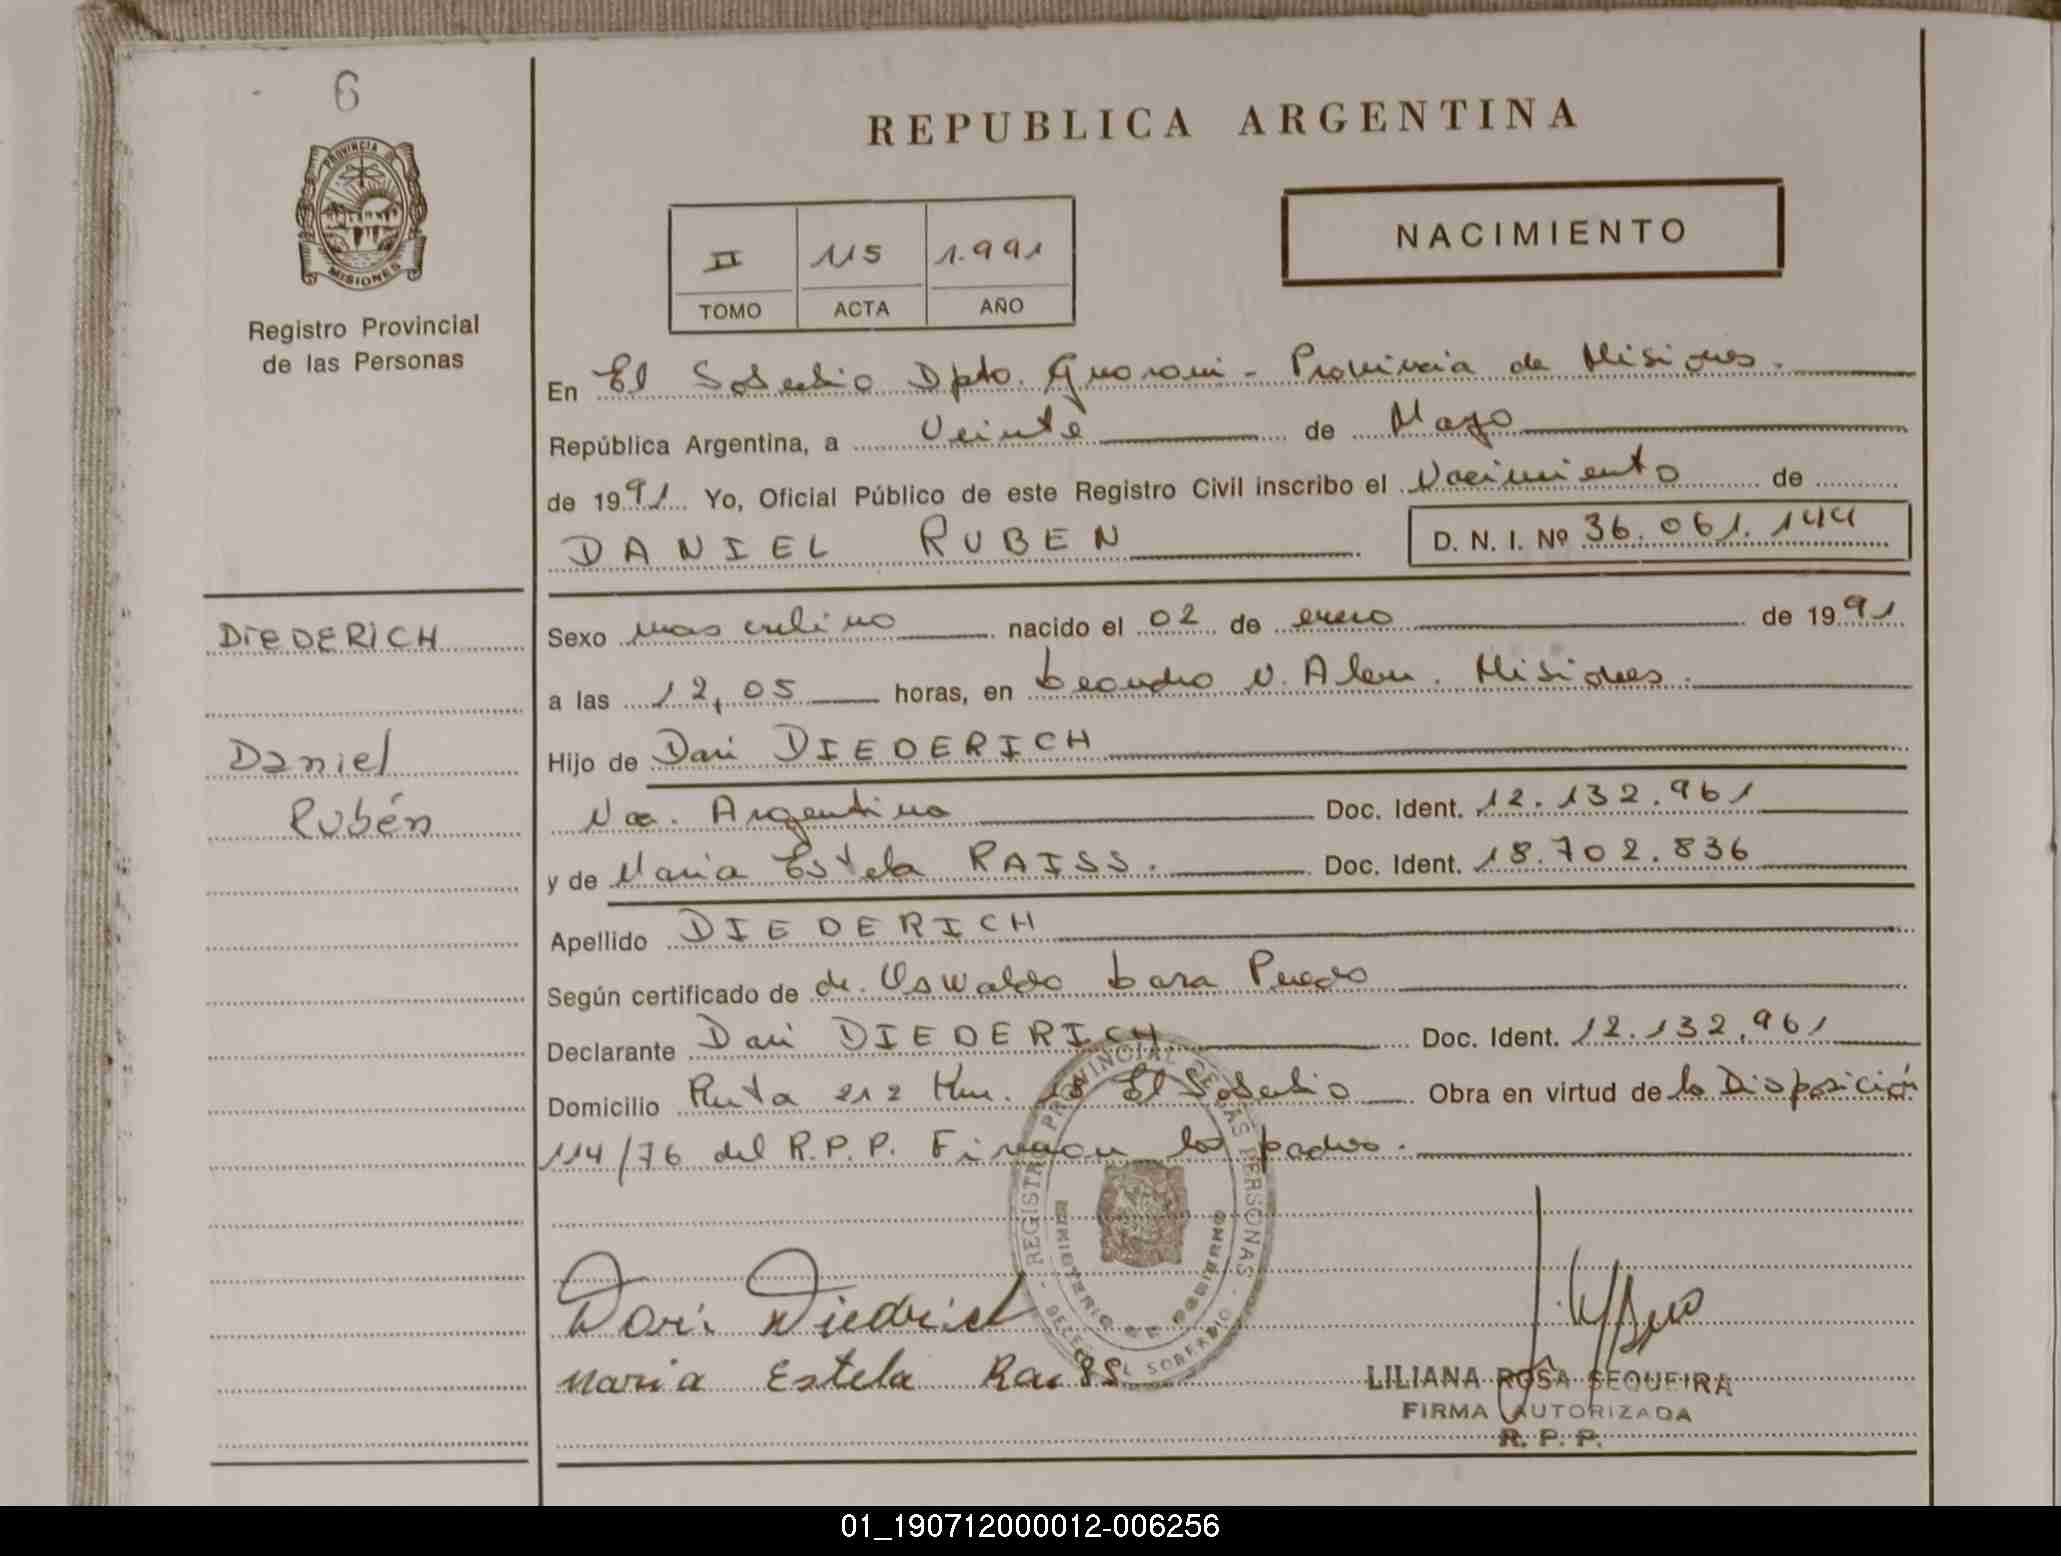 6
PROVINCIA DE
MISIONES
Registro Provincial
de las Personas
REPUBLICA ARGENTINA
II 115 1.991
TOMO ACTA AÑO
NACIMIENTO
En El Soberbio Dpto. Guarani - Provincia de Misiones.
República Argentina, a Veinte de Mayo
de 1991 Yo, Oficial Público de este Registro Civil inscribo el Nacimiento de
DANIEL RUBEN D. N. I. Nº 36.061.144
DIEDERICH
Daniel
Rubén
Sexo masculino nacido el 02 de enero de 1991
a las 12,05 horas, en Leandro N. Alem. Misiones.
Hijo de Dari DIEDERICH
Nac. Argentina Doc. Ident. 12.132.961
y de Maria Estela RAISS. Doc. Ident. 18.702.836
Apellido DIEDERICH
Según certificado de dr. Oswaldo Lara
Declarante Dari DIEDERICH Doc. Ident. 12.132.961
Domicilio Ruta 212 Km. 18 El Soberbio Obra en virtud de la Disposición
114/76 del R.P.P. Firman los padres.
REGISTRO PROVINCIAL DE LAS PERSONAS
MINISTERIO DE GOBIERNO
EL SOBERBIO
Dari Diedrich
Maria Estela Raiss
LILIANA ROSA SEQUEIRA
FIRMA AUTORIZADA
R. P. P.
01_190712000012-006256